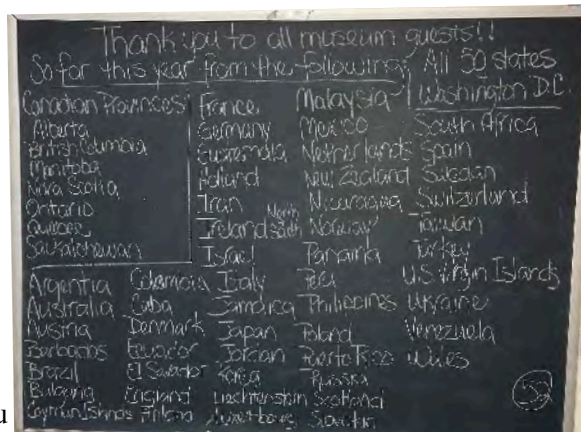 Thank you to all museum guests!!
So far this year from the following:
All 50 states
Washington D.C.
Canadian Provinces
Alberta
British Columbia
Manitoba
Nova Scotia
Ontario
Quebec
Saskatchewan
Argentia
Australia
Austria
Barbados
Brazil
Cayman Islands
Colombia
Cuba
Denmark
Ecuador
El Salvador
England
Finland
France
Germany
Guatemala
Holland
Iran
Ireland North South
Israel
Italy
Jamaica
Japan
Jordan
Kenya
Liechtenstein
Luxembourg
Malaysia
Mexico
Netherlands
New Zealand
Nicaragua
Norway
Panama
Peru
Philippines
Poland
Puerto Rico
Russia
Scotland
South Africa
Spain
Sweden
Switzerland
Taiwan
Turkey
US Virgin Islands
Ukraine
Venezuela
Wales
52
u